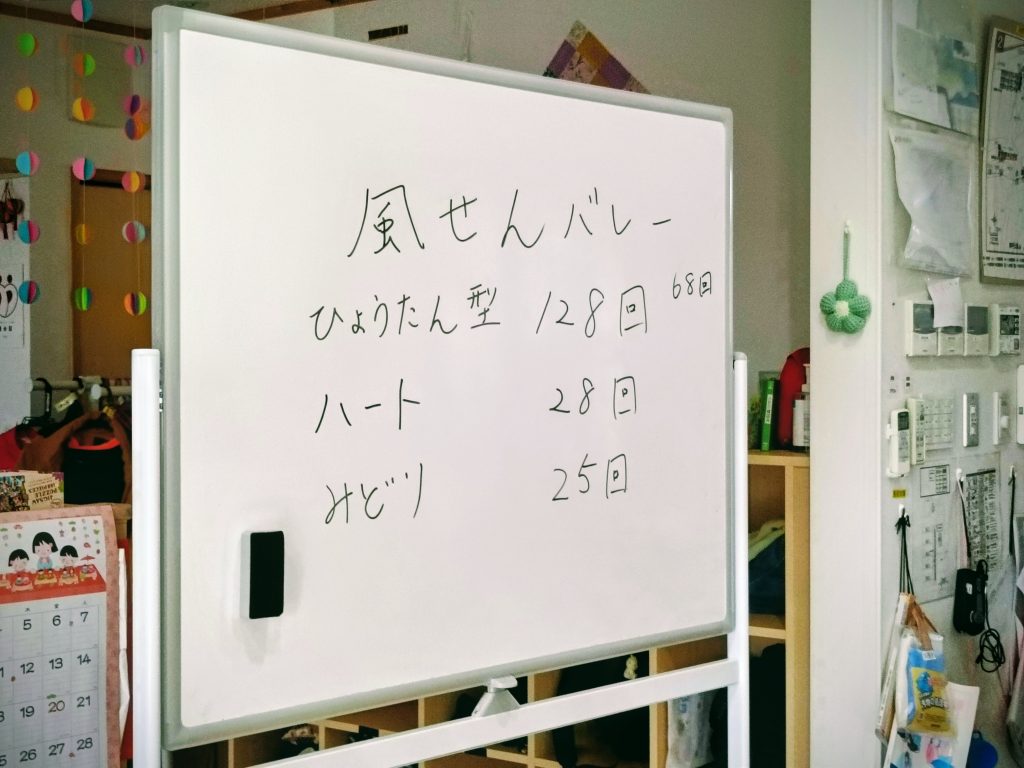 風せんバレー
ひょうたん型 128回 68回
ハート 28回
みどり 25回
木 金 土
5 6 7
12 13 14
19 20 21
26 27 28